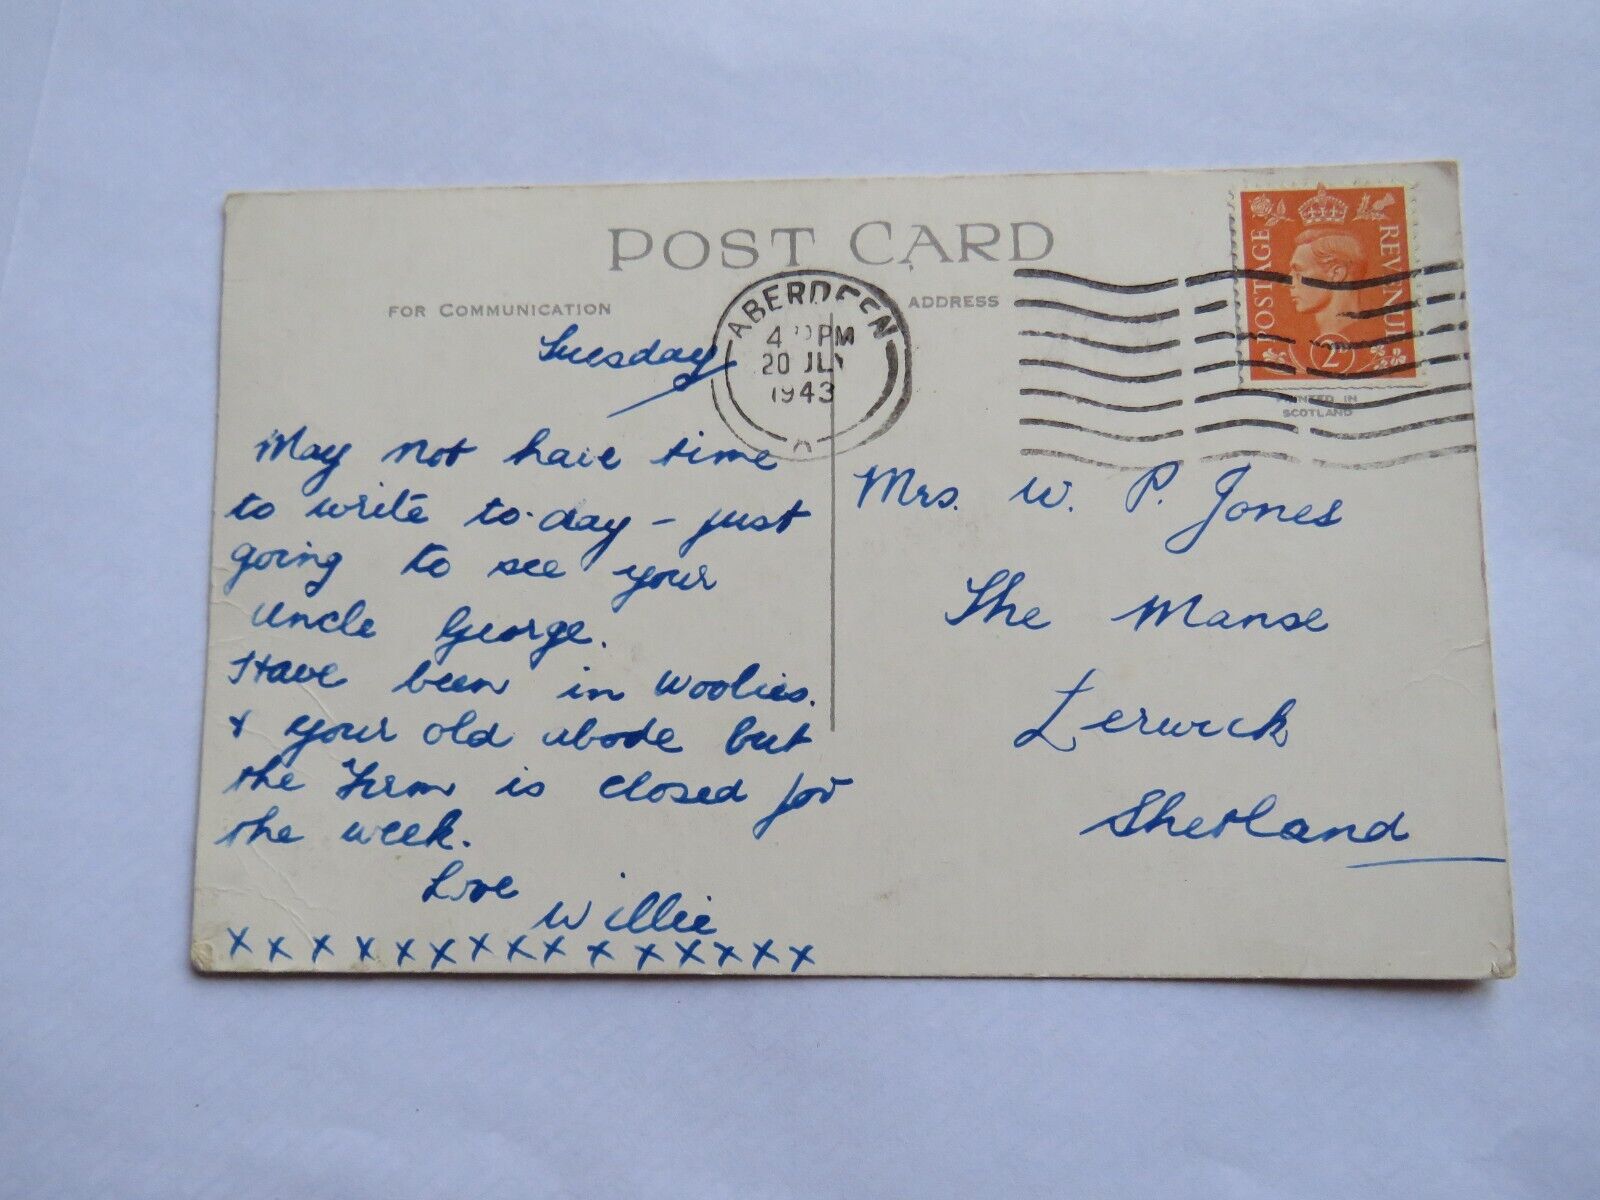 POST CARD
FOR COMMUNICATION
ADDRESS
ABERDEEN
PM
20 JLY
1943
POSTAGE
REVENUE
2D
PRINTED IN
SCOTLAND
Tuesday
May not have time
to write to-day – just
going to see your
Uncle George.
Have been in Woolies.
+ your old abode but
the Firm is closed for
the week.
Love
Willie
x x x x x x x x x x x x x x x x
Mrs. W. P. Jones
The Manse
Lerwick
Shetland